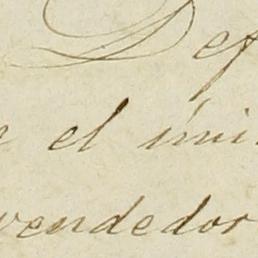 Def
e el úni
vendedor